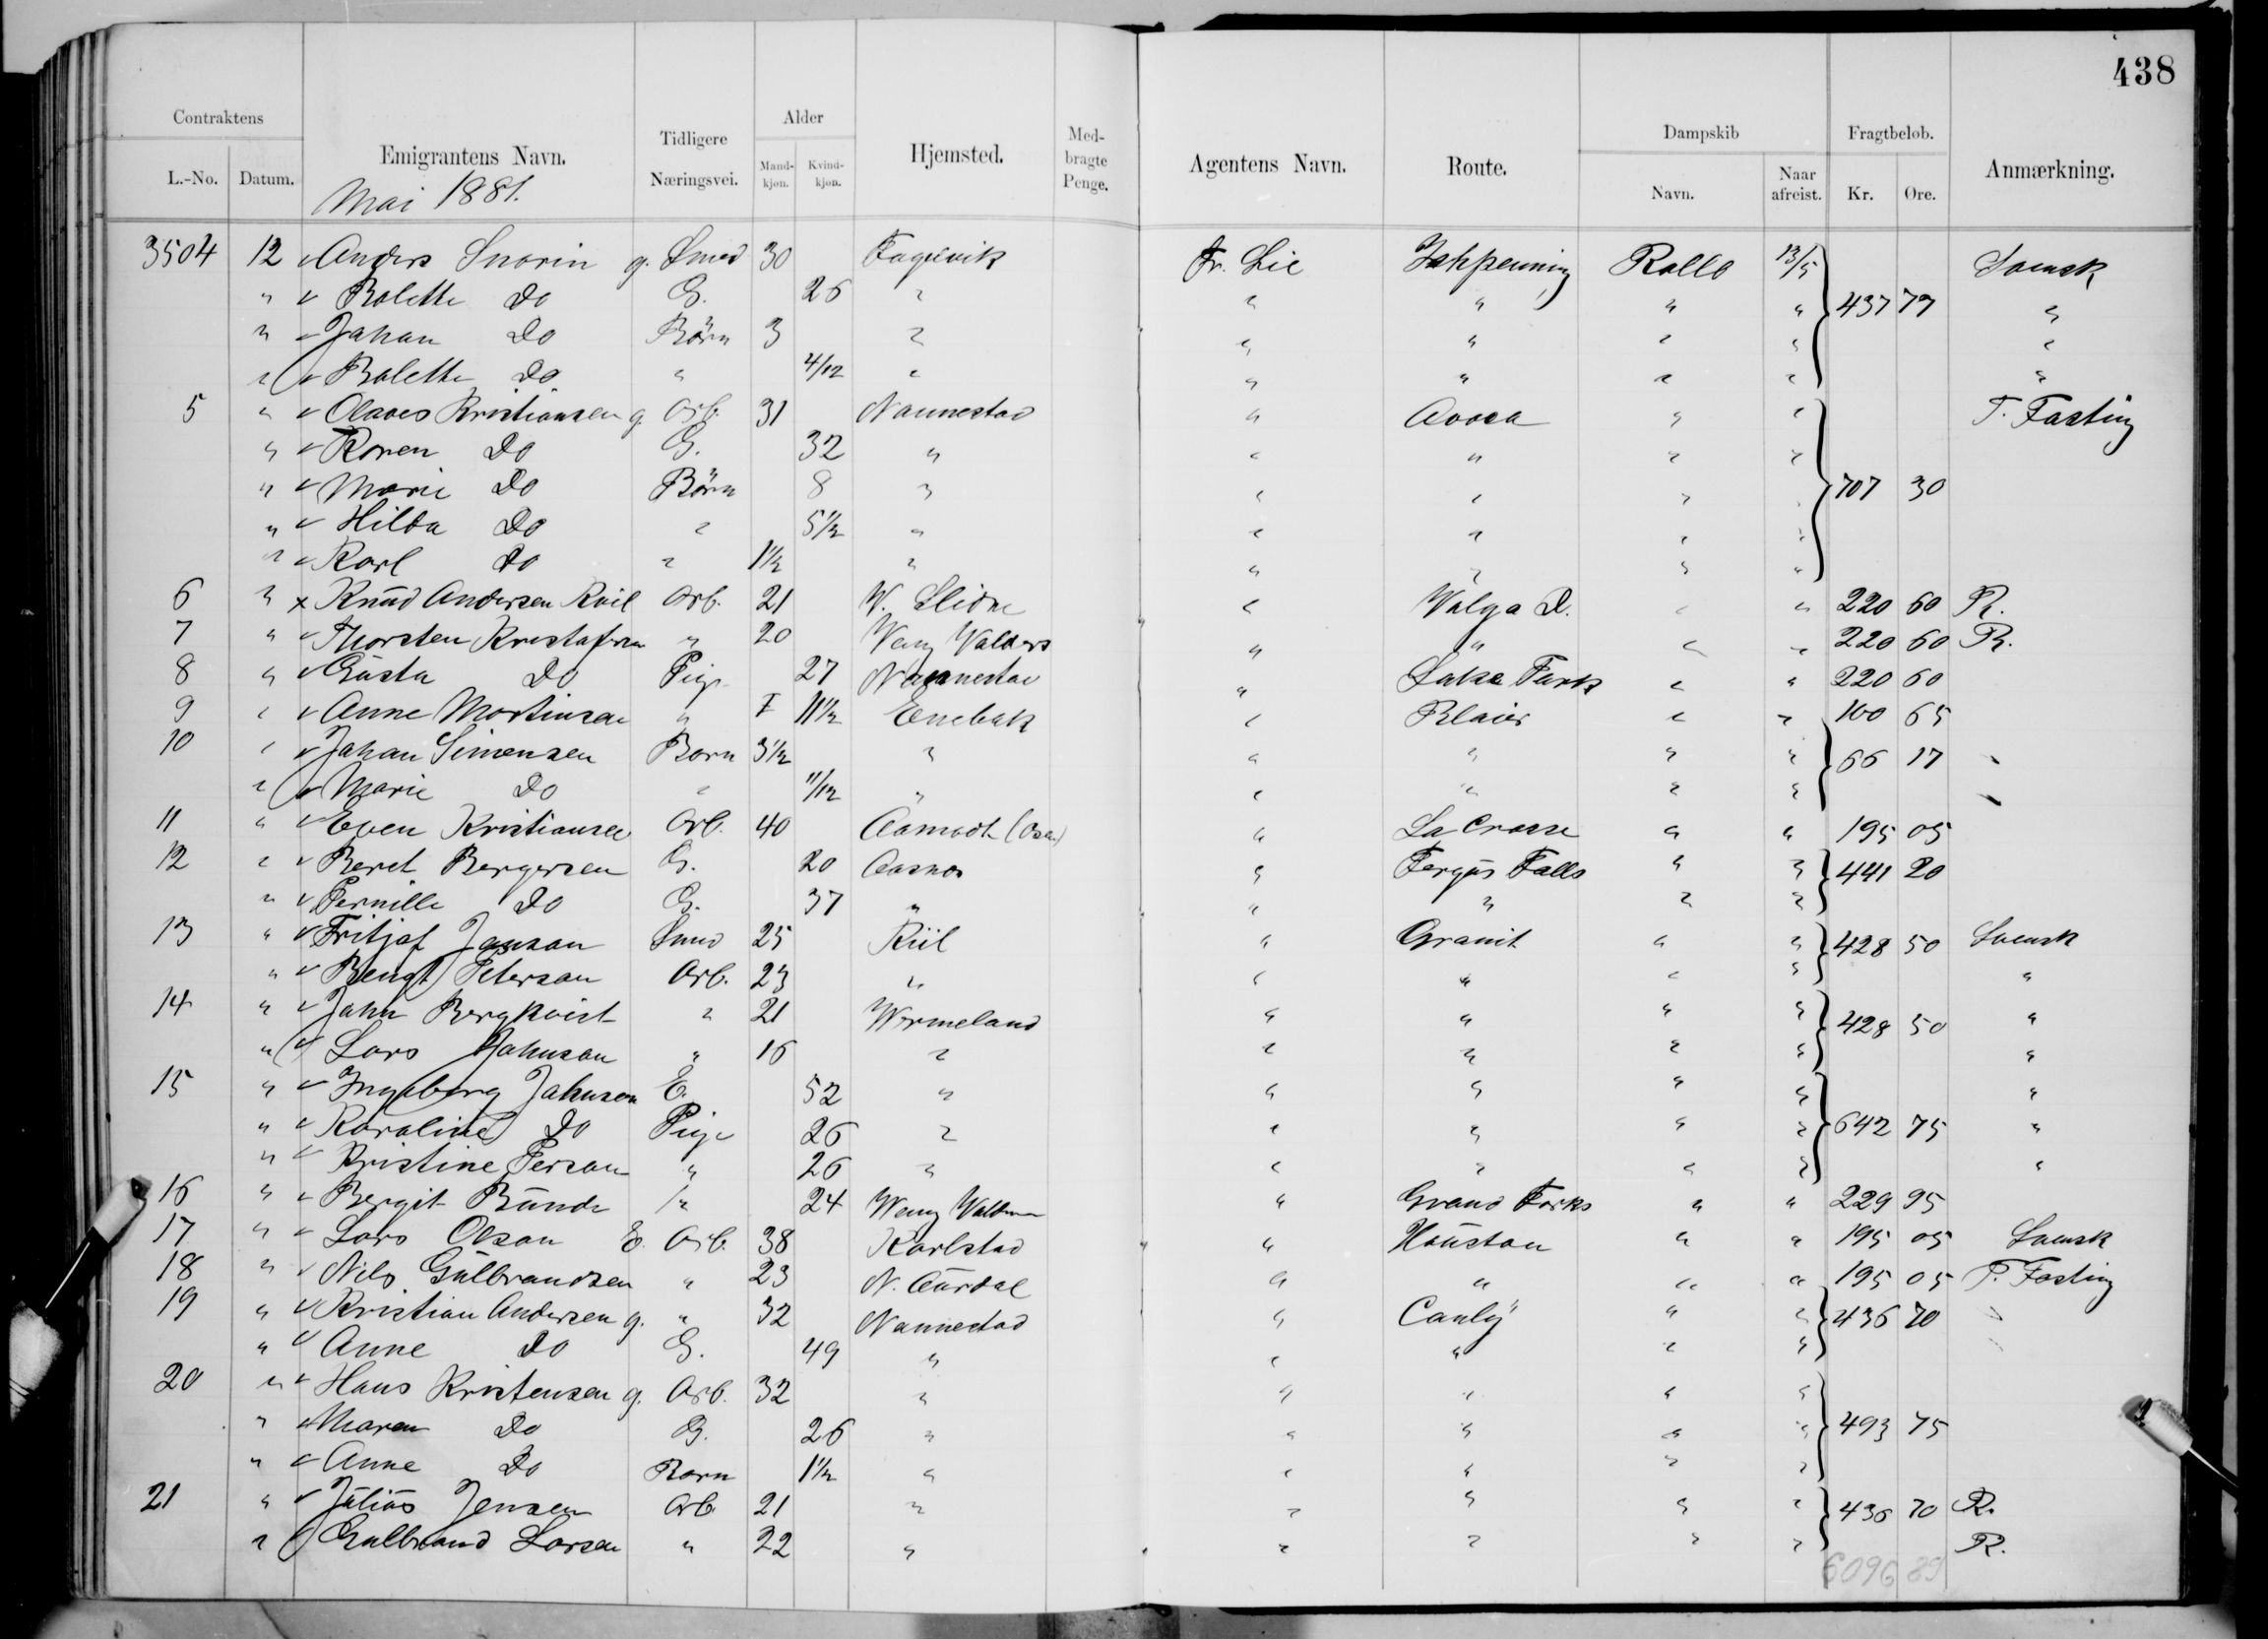 438
Contraktens Emigrantens Navn. Tidligere Næringsvei. Alder Hjemsted. Med-bragte Penge. Agentens Navn. Route. Dampskib Fragtbeløb. Anmærkning.
L.-No. Datum. Mand-kjøn. Kvind-kjøn. Navn. Naar afreist. Kr. Øre.
Mai 1881.
3504 12 Anders g. Smed 30 Fr. Lie Rollo 13/5 Svensk
" Bolette Do G. 26 " " " " " 437 77 "
" Johan Do Börn 3 " " " " " "
" Bolette Do " 4/12 " " " " " "
5 " Olaves Kristiansen g. Arb. 31 Nannestad " Avoca " " T. Fasting
" Karen Do G. 32 " " " " "
" Marie Do Börn 8 " " " " " 707 30
" Hilda Do " 5 1/2 " " " " "
" Karl Do " 1 1/2 " " " " "
6 " x Knud Andersen Arb. 21 V. Slidre " Volga D. " " 220 60 R.
7 " Thorsten Kristofersen " 20 Vang Valders " " " " 220 60 R.
8 " Gusta Do Pige 27 Nannestad " Lake Park " " 220 60
9 " Anne Martinsen " 11 1/2 Enebak " Blair " " 100 65
10 " Johan Simensen Born 3 1/2 " " " " " 66 17
" Marie Do " 11/12 " " " " "
11 " Even Kristiansen Arb. 40 Aamodt " La Crosse " " 195 05
12 " Beret Bergersen G. 20 Aasnes " Fergus Falls " " 441 20
" Pernille Do G. 37 " " " " "
13 " Fritjof Janson Smed 25 Kiil " Granit " " 428 50 Svensk
" Bengt Peterson Arb. 23 " " " " " "
14 " John Bergkvist " 21 Wermeland " " " " 428 50 "
" Lars Johnson " 16 " " " " " "
15 " Ingeborg Johnson E. 52 " " " " " "
" Karoline Do Pige 26 " " " " " 642 75 "
" Kristine Person " 26 " " " " " "
16 " Bergit Bunde " 24 Vang Valders " Grand Forks " " 229 95
17 " Lars Olson E. Arb. 38 Karlstad " Houston " " 195 05 Svensk
18 " Nils Gulbrandsen " 23 N. Aurdal " " " " 195 05 T. Fasting
19 " Kristian Andersen g. " 32 Nannestad " Canby " " 436 70
" Anne Do G. 49 " " " " "
20 " Hans Kristensen g. Arb. 32 " " " " "
" Maren Do G. 26 " " " " " 493 75
" Anne Do Barn 1 1/2 " " " " "
21 " Julius Jensen Arb 21 " " " " " 436 70 R.
" Gulbrand Larsen " 22 " " " " " R.
6096 89